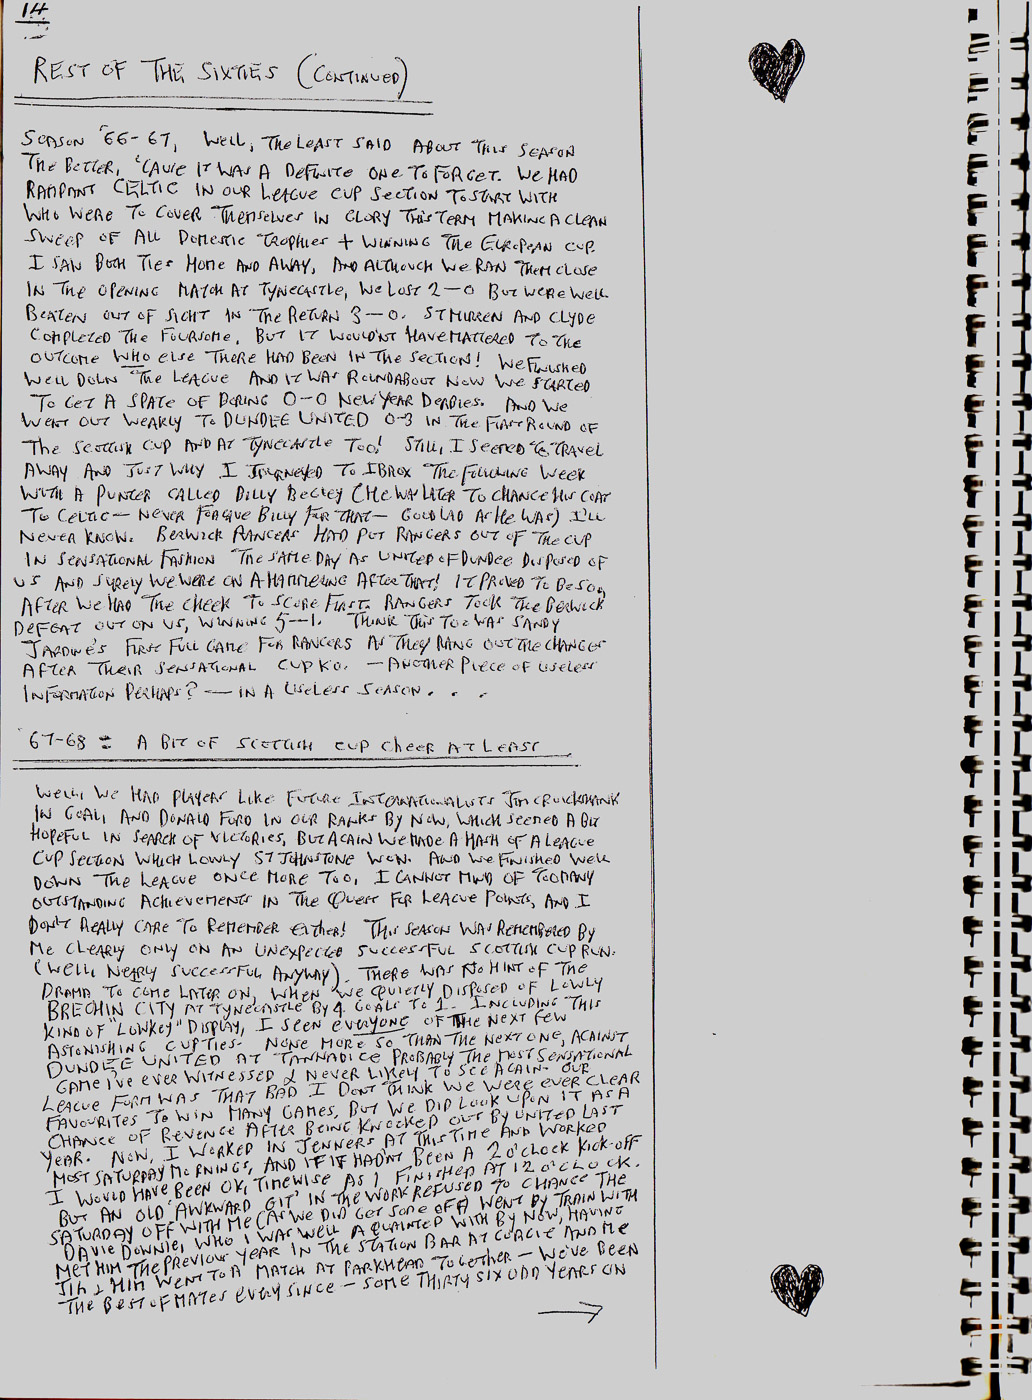 14
REST OF THE SIXTIES (CONTINUED)
SEASON '66-67, WELL, THE LEAST SAID ABOUT THIS SEASON
THE BETTER, 'CAUSE IT WAS A DEFINITE ONE TO FORGET. WE HAD
RAMPANT CELTIC IN OUR LEAGUE CUP SECTION TO START WITH
WHO WERE TO COVER THEMSELVES IN GLORY THIS TERM MAKING A CLEAN
SWEEP OF ALL DOMESTIC TROPHIES + WINNING THE EUROPEAN CUP.
I SAW BOTH TIES HOME AND AWAY, AND ALTHOUGH WE RAN THEM CLOSE
IN THE OPENING MATCH AT TYNECASTLE, WE LOST 2-0 BUT WERE WELL
BEATEN OUT OF SIGHT IN THE RETURN 3-0. ST MIRREN AND CLYDE
COMPLETED THE FOURSOME, BUT IT WOULDN'T HAVE MATTERED TO THE
OUTCOME WHO ELSE THERE HAD BEEN IN THE SECTION! WE FINISHED
WELL DOWN THE LEAGUE AND IT WAS ROUNDABOUT NOW WE STARTED
TO GET A SPATE OF BORING 0-0 NEW YEAR DERBIES. AND WE
WENT OUT WEAKLY TO DUNDEE UNITED 0-3 IN THE FIRST ROUND OF
THE SCOTTISH CUP AND AT TYNECASTLE TOO! STILL, I SEEMED TO TRAVEL
AWAY AND JUST WHY I JOURNEYED TO IBROX THE FOLLOWING WEEK
WITH A PUNTER CALLED BILLY BEGLEY (HE WAS LATER TO CHANGE HIS COAT
TO CELTIC - NEVER FORGIVE BILLY FOR THAT - GOOD LAD AS HE WAS) I'LL
NEVER KNOW. BERWICK RANGERS HAD PUT RANGERS OUT OF THE CUP
IN SENSATIONAL FASHION THE SAME DAY AS UNITED OF DUNDEE DISPOSED OF
US AND SURELY WE WERE ON A HAMMERING AFTER THAT! IT PROVED TO BE SO,
AFTER WE HAD THE CHEEK TO SCORE FIRST. RANGERS TOOK THE BERWICK
DEFEAT OUT ON US, WINNING 5-1. THINK THIS TOO WAS SANDY
JARDINE'S FIRST FULL GAME FOR RANGERS AS THEY RANG OUT THE CHANGES
AFTER THEIR SENSATIONAL CUP K.O. - ANOTHER PIECE OF USELESS
INFORMATION PERHAPS? - IN A USELESS SEASON . . .
'67-68 = A BIT OF SCOTTISH CUP CHEER AT LEAST
WELL, WE HAD PLAYERS LIKE FUTURE INTERNATIONALISTS JIM CRUICKSHANK
IN GOAL, AND DONALD FORD IN OUR RANKS BY NOW, WHICH SEEMED A BIT
HOPEFUL IN SEARCH OF VICTORIES, BUT AGAIN WE MADE A HASH OF A LEAGUE
CUP SECTION WHICH LOWLY ST JOHNSTONE WON. AND WE FINISHED WELL
DOWN THE LEAGUE ONCE MORE TOO, I CANNOT MIND OF TOO MANY
OUTSTANDING ACHIEVEMENTS IN THE QUEST FOR LEAGUE POINTS, AND I
DON'T REALLY CARE TO REMEMBER EITHER! THIS SEASON WAS REMEMBERED BY
ME CLEARLY ONLY ON AN UNEXPECTED SUCCESSFUL SCOTTISH CUP RUN.
(WELL, NEARLY SUCCESSFUL ANYWAY). THERE WAS NO HINT OF THE
DRAMA TO COME LATER ON, WHEN WE QUIETLY DISPOSED OF LOWLY
BRECHIN CITY AT TYNECASTLE BY 4 GOALS TO 1. INCLUDING THIS
KIND OF "LOWKEY" DISPLAY, I SEEN EVERYONE OF THE NEXT FEW
ASTONISHING CUP TIES. NONE MORE SO THAN THE NEXT ONE, AGAINST
DUNDEE UNITED AT TANNADICE PROBABLY THE MOST SENSATIONAL
GAME I'VE EVER WITNESSED & NEVER LIKELY TO SEE AGAIN. OUR
LEAGUE FORM WAS THAT BAD I DON'T THINK WE WERE EVER CLEAR
FAVOURITES TO WIN MANY GAMES, BUT WE DID LOOK UPON IT AS A
CHANCE OF REVENGE AFTER BEING KNOCKED OUT BY UNITED LAST
YEAR. NOW, I WORKED IN JENNERS AT THIS TIME AND WORKED
MOST SATURDAY MORNINGS, AND IF IT HADN'T BEEN A 2 O'CLOCK KICK-OFF
I WOULD HAVE BEEN OK, TIMEWISE AS I FINISHED AT 12 O'CLOCK.
BUT AN OLD 'AWKWARD GIT' IN THE WORK REFUSED TO CHANGE THE
SATURDAY OFF WITH ME (AS WE DID GET SOME OFF) I WENT BY TRAIN WITH
DAVIE DOWNIE, WHO I WAS WELL AQUAINTED WITH BY NOW, HAVING
MET HIM THE PREVIOUS YEAR IN THE STATION BAR AT GORGIE AND ME
JIM & HIM WENT TO A MATCH AT PARKHEAD TOGETHER - WE'VE BEEN
THE BEST OF MATES EVERY SINCE - SOME THIRTY SIX ODD YEARS ON